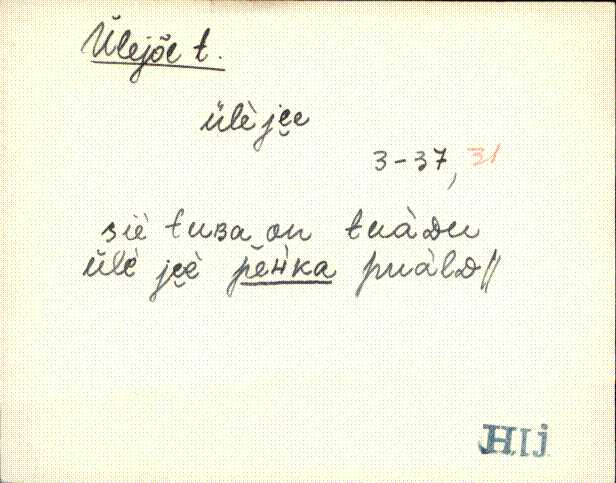 Ülejõe t.
ülè je̮e
3-37, 31
siè tuʙa on tuàᴅu
ülè je̮è pèǹ'ka puàlᴅ //
HIj